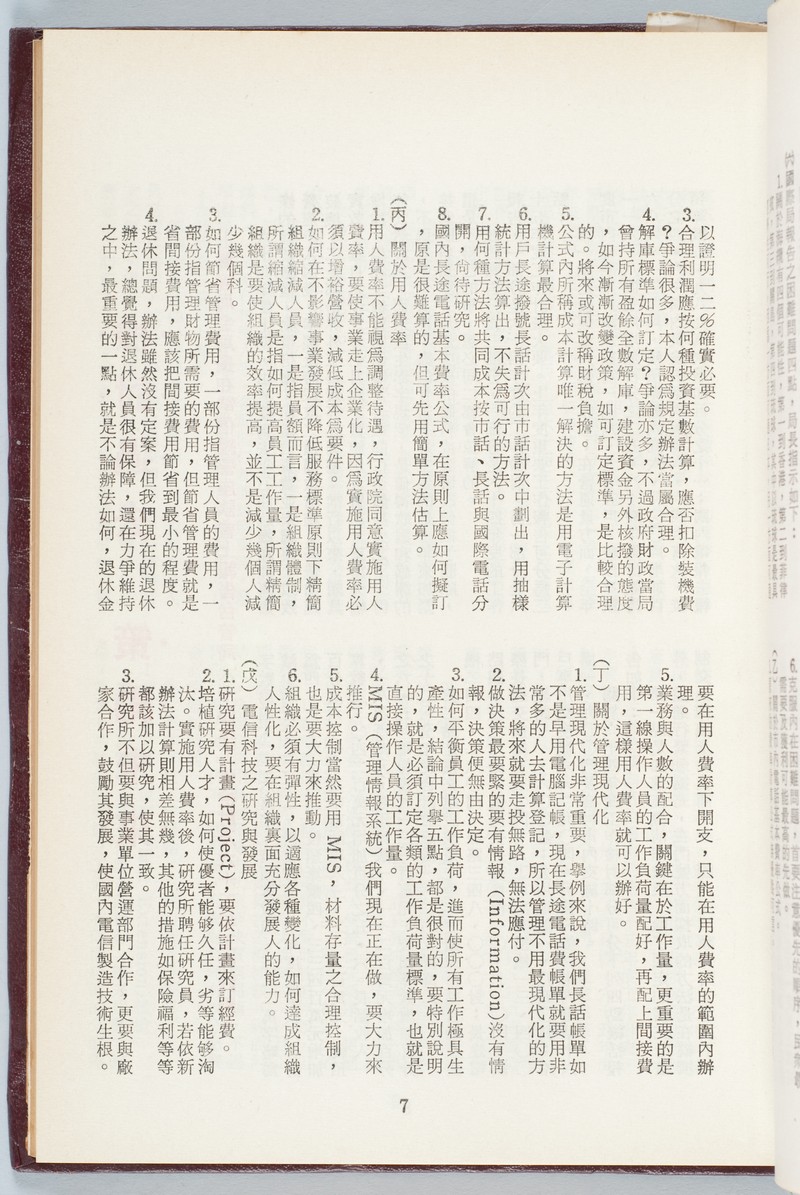 以證明一二%確實必要。
3.合理利潤應按何種投資基數計算，應否扣除裝機費
？爭論很多，本人認爲規定辦法當屬合理。
4.解庫標準如何訂定？爭論亦多，不過政府財政當局
曾持所有盈餘全數解庫，建設資金另外核撥的態度
，如今漸漸改變政策，如可訂定標準，是比較合理
的。將來或可改稱財稅負擔。
5.公式內所稱成本計算唯一解決的方法是用電子計算
機計算最合理。
6.用戶長途撥號長話計次由市話計次中劃出，用抽樣
統計方法算出，不失爲可行的方法。
7.用何種方法將共同成本按市話、長話與國際電話分
開，尙待研究。
8.國內長途電話基本費率公式，在原則上應如何擬訂
，原是很難算的，但可先用簡單方法估算。
(丙)關於用人費率
1.用人費率不能視爲調整待遇，行政院同意實施用人
費率，要使事業走上企業化，因爲實施用人費率必
須以增裕營收，減低成本爲要件。
2.如何在不影響事業發展不降低服務標準原則下精簡
組織縮減人員，一是指員額而言，一是組織體制，
所謂縮減人員是指如何提高員工工作量，所謂精簡
組織是要使組織的效率提高，並不是減少幾個人減
少幾個科。
3.如何節省管理費用，一部份指管理人員的費用，一
部份指管理財物所需要的費用，但節省管理費就是
省間接費用，應該把間接費用節省到最小的程度。
4.退休問題，辦法雖然沒有定案，但我們現在的退休
辦法，總覺得對退休人員很有保障，還在力爭維持
之中，最重要的一點，就是不論辦法如何，退休金
要在用人費率下開支，只能在用人費率的範圍內辦
理。
5.業務與人數的配合，關鍵在於工作量，更重要的是
第一線操作人員的工作負荷量配好，再配上間接費
用，這樣用人費率就可以辦好。
(丁)關於管理現代化
1.管理現代化非常重要，舉例來說，我們長話帳單如
不是早用電腦記帳，現在長途電話費帳單就要用非
常多的人去計算登記，所以管理不用最現代化的方
法，將來就要走投無路，無法應付。
2.做決策最要緊的要有情報(Information)沒有情
報，決策便無由決定。
3.如何平衡員工的工作負荷，進而使所有工作極具生
產性，結論中列舉五點，都是很對的，要特別說明
的，就是必須訂定各類的工作負荷量標準，也就是
直接操作人員的工作量。
4.MIS(管理情報系統)我們現在正在做，要大力來
推行。
5.成本控制當然要用 MIS，材料存量之合理控制，
也是要大力來推動。
6.組織必須有彈性，以適應各種變化，如何達成組織
人性化，要在組織裏面充分發展人的能力。
(戊)電信科技之研究與發展
1.研究要有計畫(Project)，要依計畫來訂經費。
2.培植研究人才，如何使優者能夠久任，劣等能夠淘
汰。實施用人費率後，研究所聘任研究員，若依新
辦法計算則相差無幾，其他的措施如保險福利等等
都該加以研究，使其一致。
3.研究所不但要與事業單位營運部門合作，更要與廠
家合作，鼓勵其發展，使國內電信製造技術生根。
7